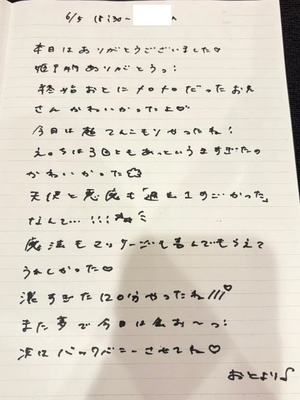 6/5 18:30~
本日はありがとうございました♡
ありがとうっ:
終始おとにメロメロだったお兄
さんかわいかったよ♡
今日は超てんこもりやったね!
えっちは3回ともあっというますぎたの
かわいかった
天使と悪魔も「過去1すごかった」
なんて…!!!
魔法もマッサージも喜んでもらえて
うれしかった♡
濃すぎた120分やったね///♡
また夢で今日は会お〜っ:
次はバックバニーさせてね♡
おとより♪